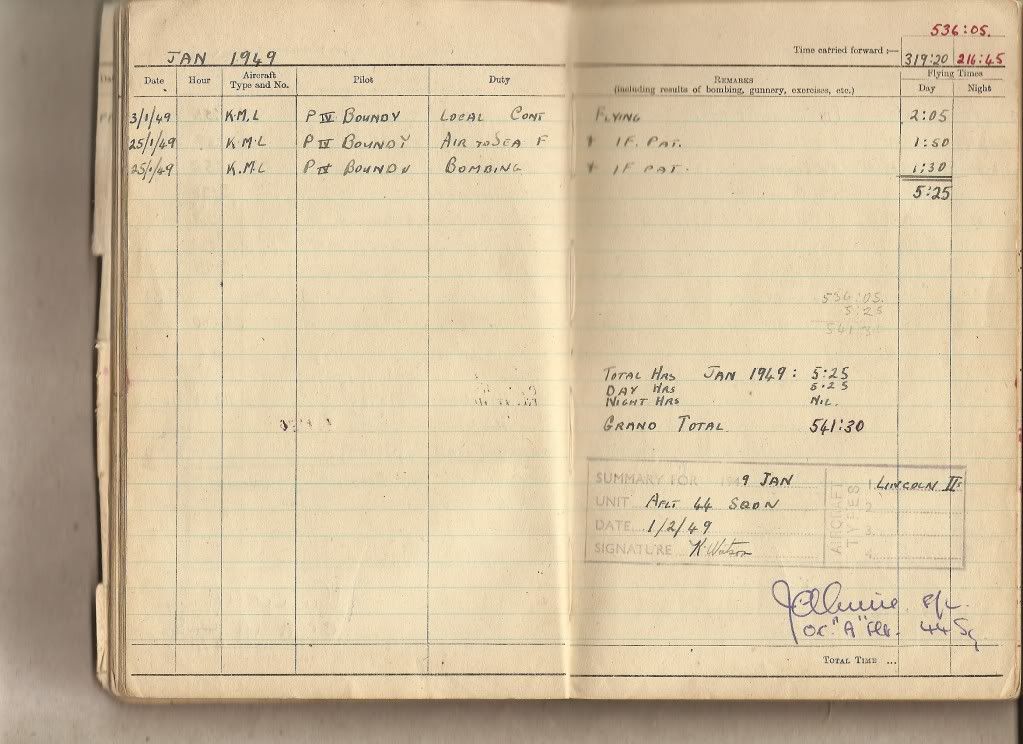 536:05.
JAN 1949
Time carried forward :— 319:20 216:45
Date Hour Aircraft Type and No. Pilot Duty
Remarks (including results of bombing, gunnery, exercises, etc.) Flying Times Day Night
3/1/49 K.M.L P IV BOUNDY LOCAL CONT FLYING 2:05
25/1/49 K.M.L P IV BOUNDY AIR TO SEA F 1 IF. PAT. 1:50
25/1/49 K.M.L P IV BOUNDY BOMBING 1 IF PAT. 1:30
5:25
536:05.
5:25
TOTAL HRS JAN 1949: 5:25
DAY HRS 5:25
NIGHT HRS NIL.
GRAND TOTAL 541:30
SUMMARY FOR 1949 JAN
UNIT AFLT 44 SQDN
DATE 1/2/49
SIGNATURE K. Watson
AIRCRAFT TYPES
1. LINCOLN IIs
2
3.
4.
OC. "A" Flt. 44 Sq
Total Time ...